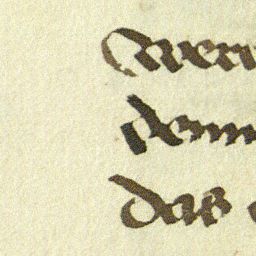 wer
denn
das